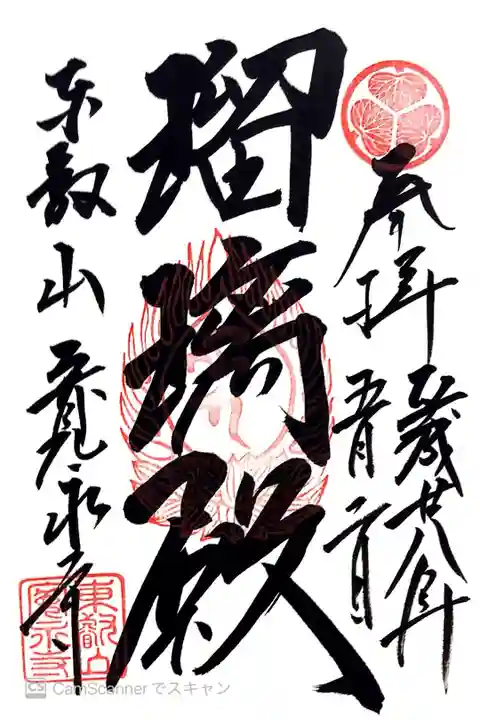 奉拝
平成廿八年
五月
瑠璃殿
東叡山 寛永寺
東叡山
寛永寺
CS CamScanner でスキャン